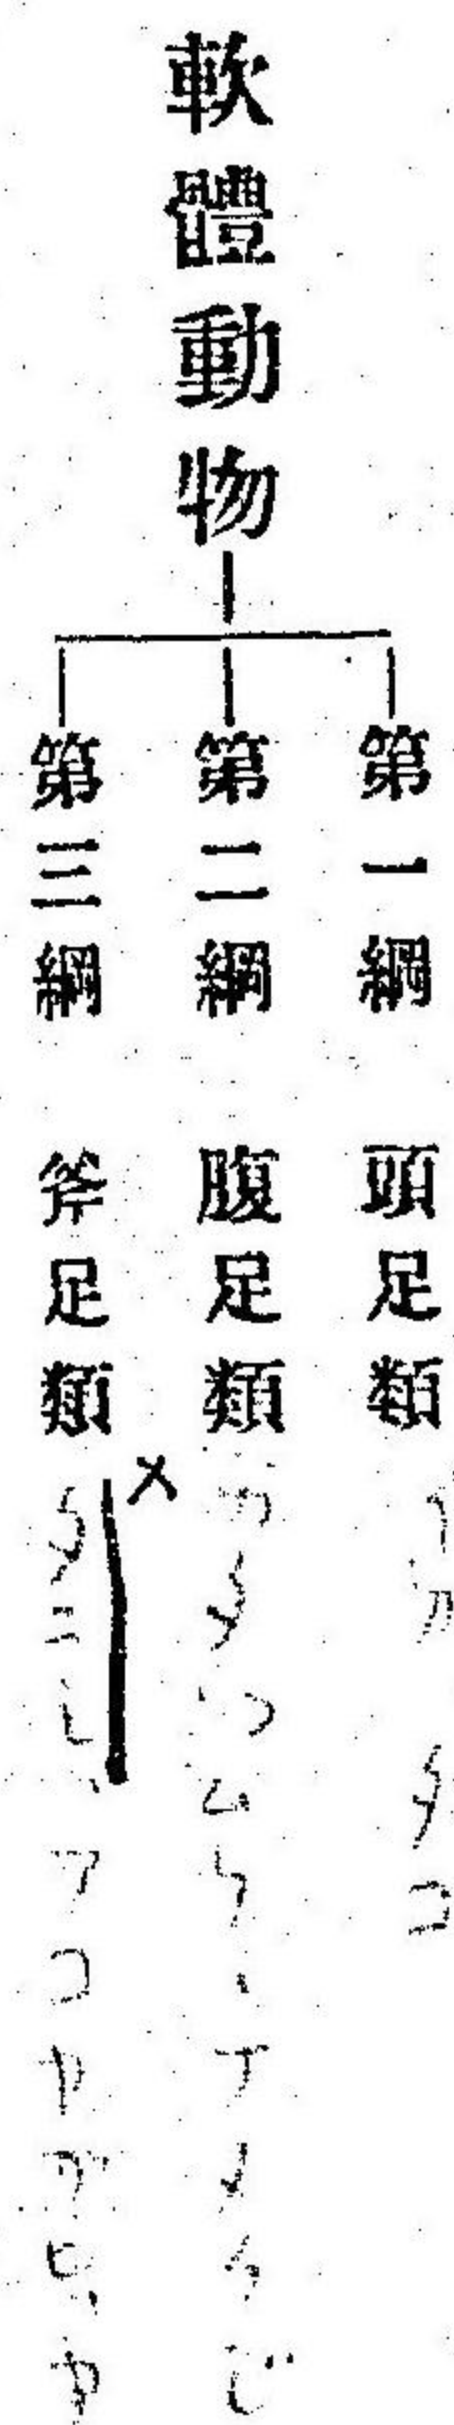 軟體動物
第一綱 頭足類 イカ タコ
第二綱 腹足類 カタツムリ、ナメクジ
第三綱 斧足類 タニシ、アコヤガヒ、
×